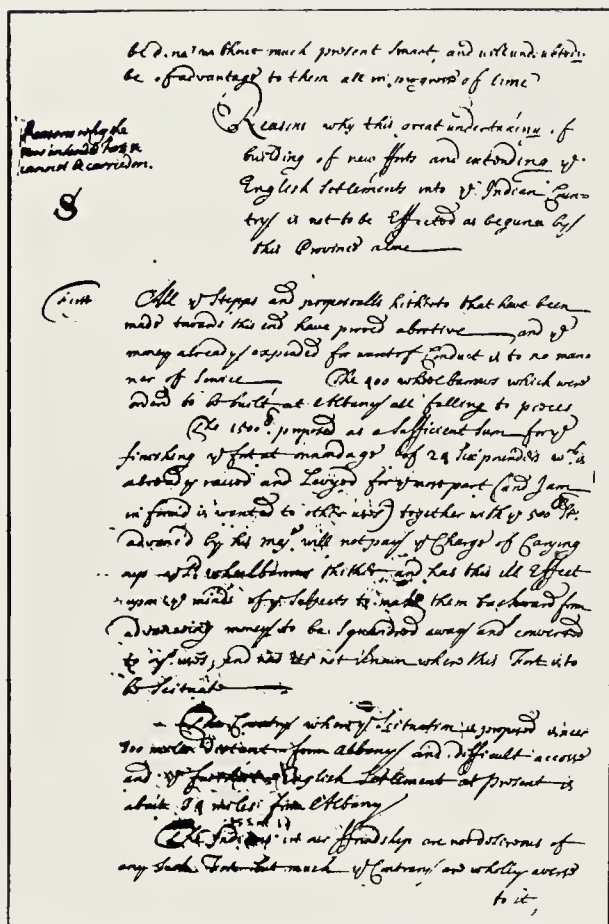 be done without much present smart, and will undoubtedly
be of advantage to them all in progress of time
Reasons why the
new intended forts
cannot be carried on.
Reasons why this great undertaking of
building of new fforts and extending ye
English Settlements into ye Indian Coun-
trys is not to be Effected as begunn by
this Province alone
first
All ye Stepps and proposealls hitherto that have been
made towards this end have proved abortive and ye
money already expended for want of Conduct is to no man-
ner of Service The 400 wheelbarrows which were
ordered to be built at Albany all falling to pieces
The 1500£ proposed as a sufficient Sum for ye
finishing ye fort at of 24 Six pounders wch is
already raised and Levyed for ye most part (and I am
informd is wonted to other uses) together with ye 500£ St.
advanced by his maj. will not pay ye Charge of Carrying
up ye wheelbarrows thither and has this ill Effect
upon ye minds of ye Subjects to make them backward from
advanceing money to be Squandred away and converted
to uses, and is not known where this Fort is to
be Scituate
The Country where ye Scituation is proposed is near
miles Distant from Albany and difficult access
and ye English Settlement at present is
about miles from Albany
The Indians in our ffriendship are not desireous of
any Such Fort but much ye Contrary are wholly averse
to it,